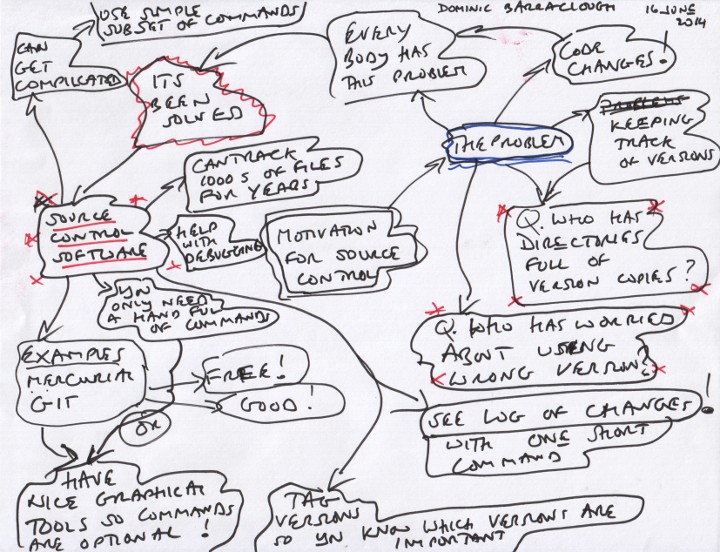 USE SIMPLE
SUBSET OF COMMANDS
DOMINIC BARRACLOUGH
16 JUNE
2014
CAN
GET
COMPLICATED
ITS
BEEN
SOLVED
EVERY
BODY HAS
THIS PROBLEM
CODE
CHANGES!
THE PROBLEM
PROBLEMS
KEEPING
TRACK
OF VERSIONS
CAN TRACK
1000'S OF FILES
FOR YEARS
SOURCE
CONTROL
SOFTWARE
HELP
WITH
DEBUGGING
MOTIVATION
FOR SOURCE
CONTROL
Q. WHO HAS
DIRECTORIES
FULL OF
VERSION COPIES?
YN
ONLY NEED
A HANDFUL
OF COMMANDS
Q. WHO HAS WORRIED
ABOUT USING
WRONG VERSION?
EXAMPLES
MERCURIAL
GIT
FREE!
GOOD!
OR
SEE LOG OF CHANGES!
WITH ONE SHORT
COMMAND
HAVE
NICE GRAPHICAL
TOOLS SO COMMANDS
ARE OPTIONAL!
TAG
VERSIONS
SO YN KNOW WHICH VERSIONS ARE
IMPORTANT